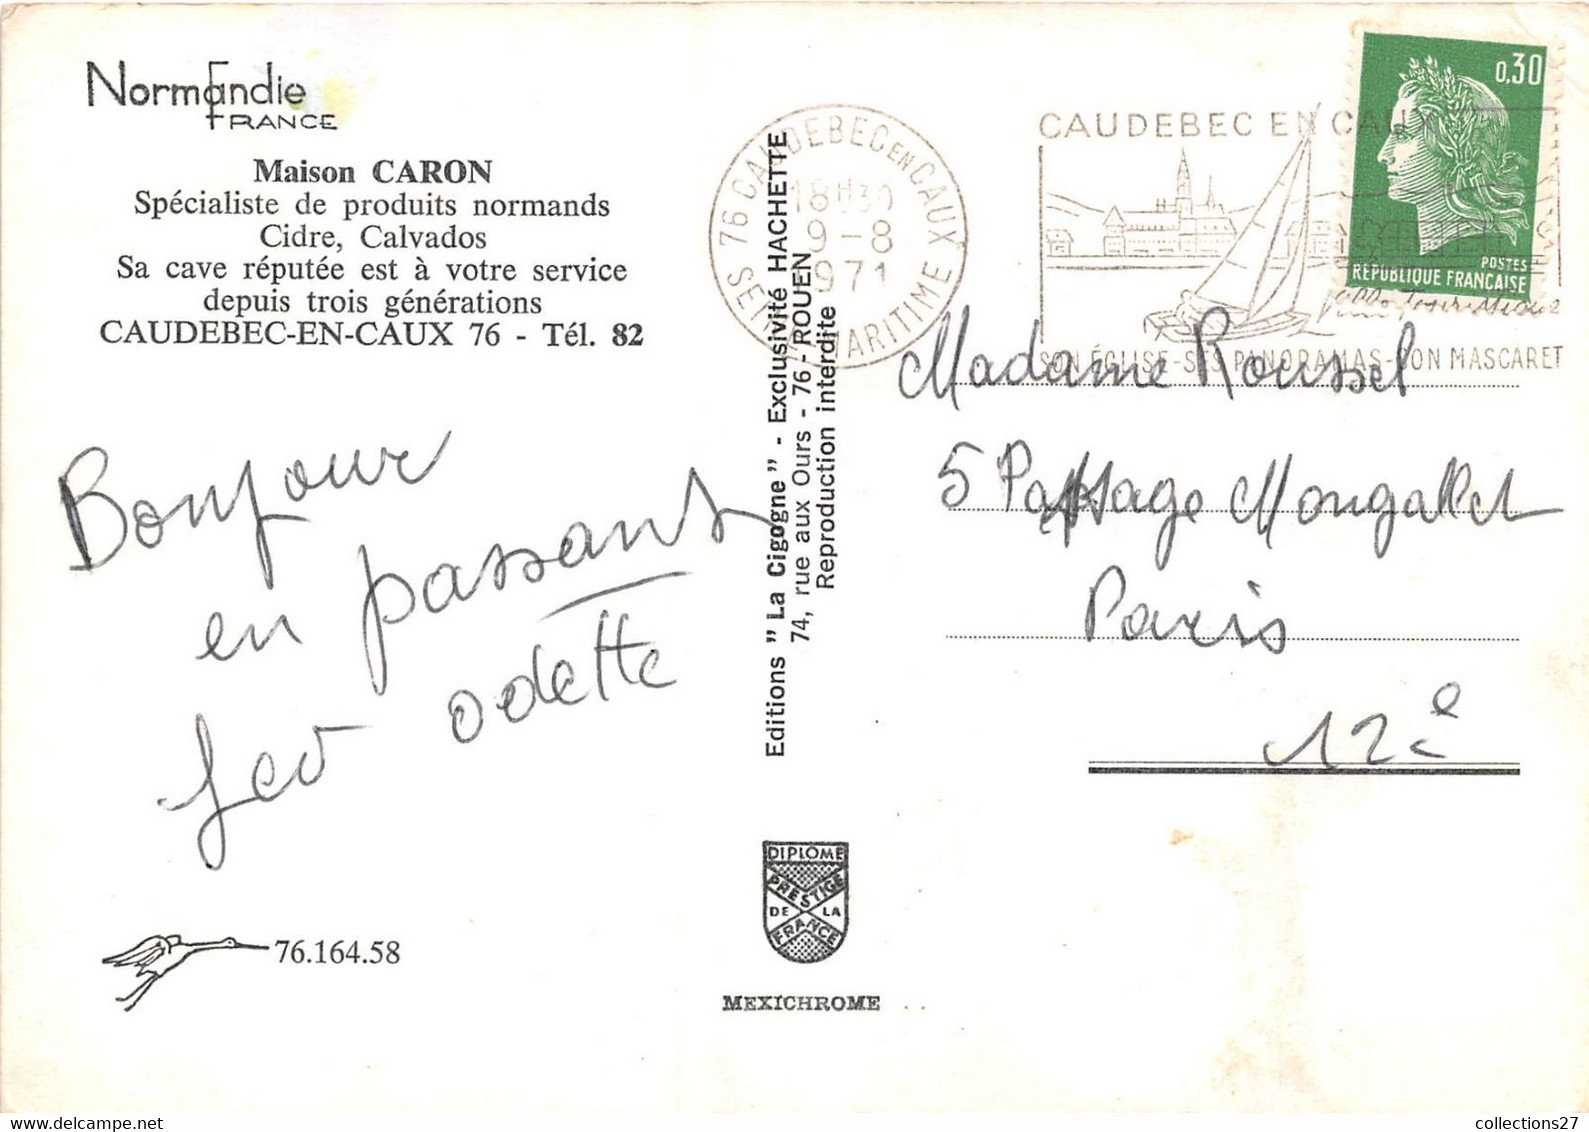 Normandie
FRANCE
Maison CARON
Spécialiste de produits normands
Cidre, Calvados
Sa cave réputée est à votre service
depuis trois générations
CAUDEBEC-EN-CAUX 76 - Tél. 82
Bonjour
en passant
Leo odette
76.164.58
Editions "La Cigogne" - Exclusivité HACHETTE
74, rue aux Ours - 76 - ROUEN
Reproduction interdite
DIPLÔME
PRESTIGE
DE LA
FRANCE
MEXICHROME
76 CAUDEBEC EN CAUX
18H30
9-8
1971
SEINE MARITIME
CAUDEBEC EN CAUX
SON ÉGLISE-SES PANORAMAS-SON MASCARET
0,30
POSTES
RÉPUBLIQUE FRANÇAISE
Madame Roussel
5 Passage Mongallet
Paris
12e
collections27